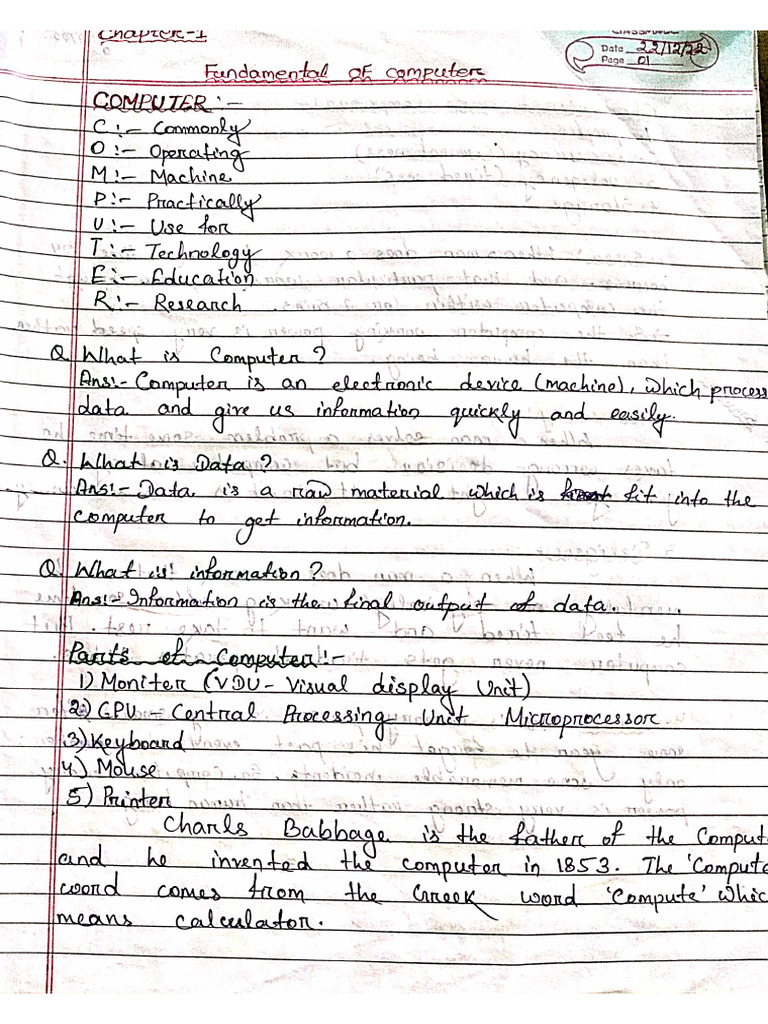 Chapter-1
CLASSMATE
Date 22/12/22
Page 01
Fundamental of computer
COMPUTER:-
C:- Commonly
O:- Operating
M:- Machine
P:- Practically
U:- Use for
T:- Technology
E:- Education
R:- Research
Q. What is Computer?
Ans:- Computer is an electronic device (machine), which process
data and give us information quickly and easily.
Q. What is Data?
Ans:- Data is a raw material which is fit into the
computer to get information.
Q. What is information?
Ans:- Information is the final output of data.
Parts of Computer:-
1) Moniter (VDU- Visual display Unit)
2) CPU - Central Processing Unit Microprocessor.
3) Keyboard
4) Mouse
5) Printer
Charls Babbage is the father of the Compute
and he invented the computer in 1853. The 'Compute
word comes from the Greek word 'Compute' whic
means calculator.